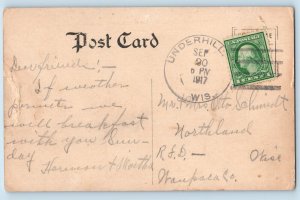 Post Card
UNDERHILL
SEP
20
PM
1917
WIS.
Dear friends!
If weather
permits we
will breakfast
with you Sun-
day
Herman & Martha
Mr. & Mrs. Otto Schmidt
Northland
R.F.D.—
Wis.
Waupaca Co.